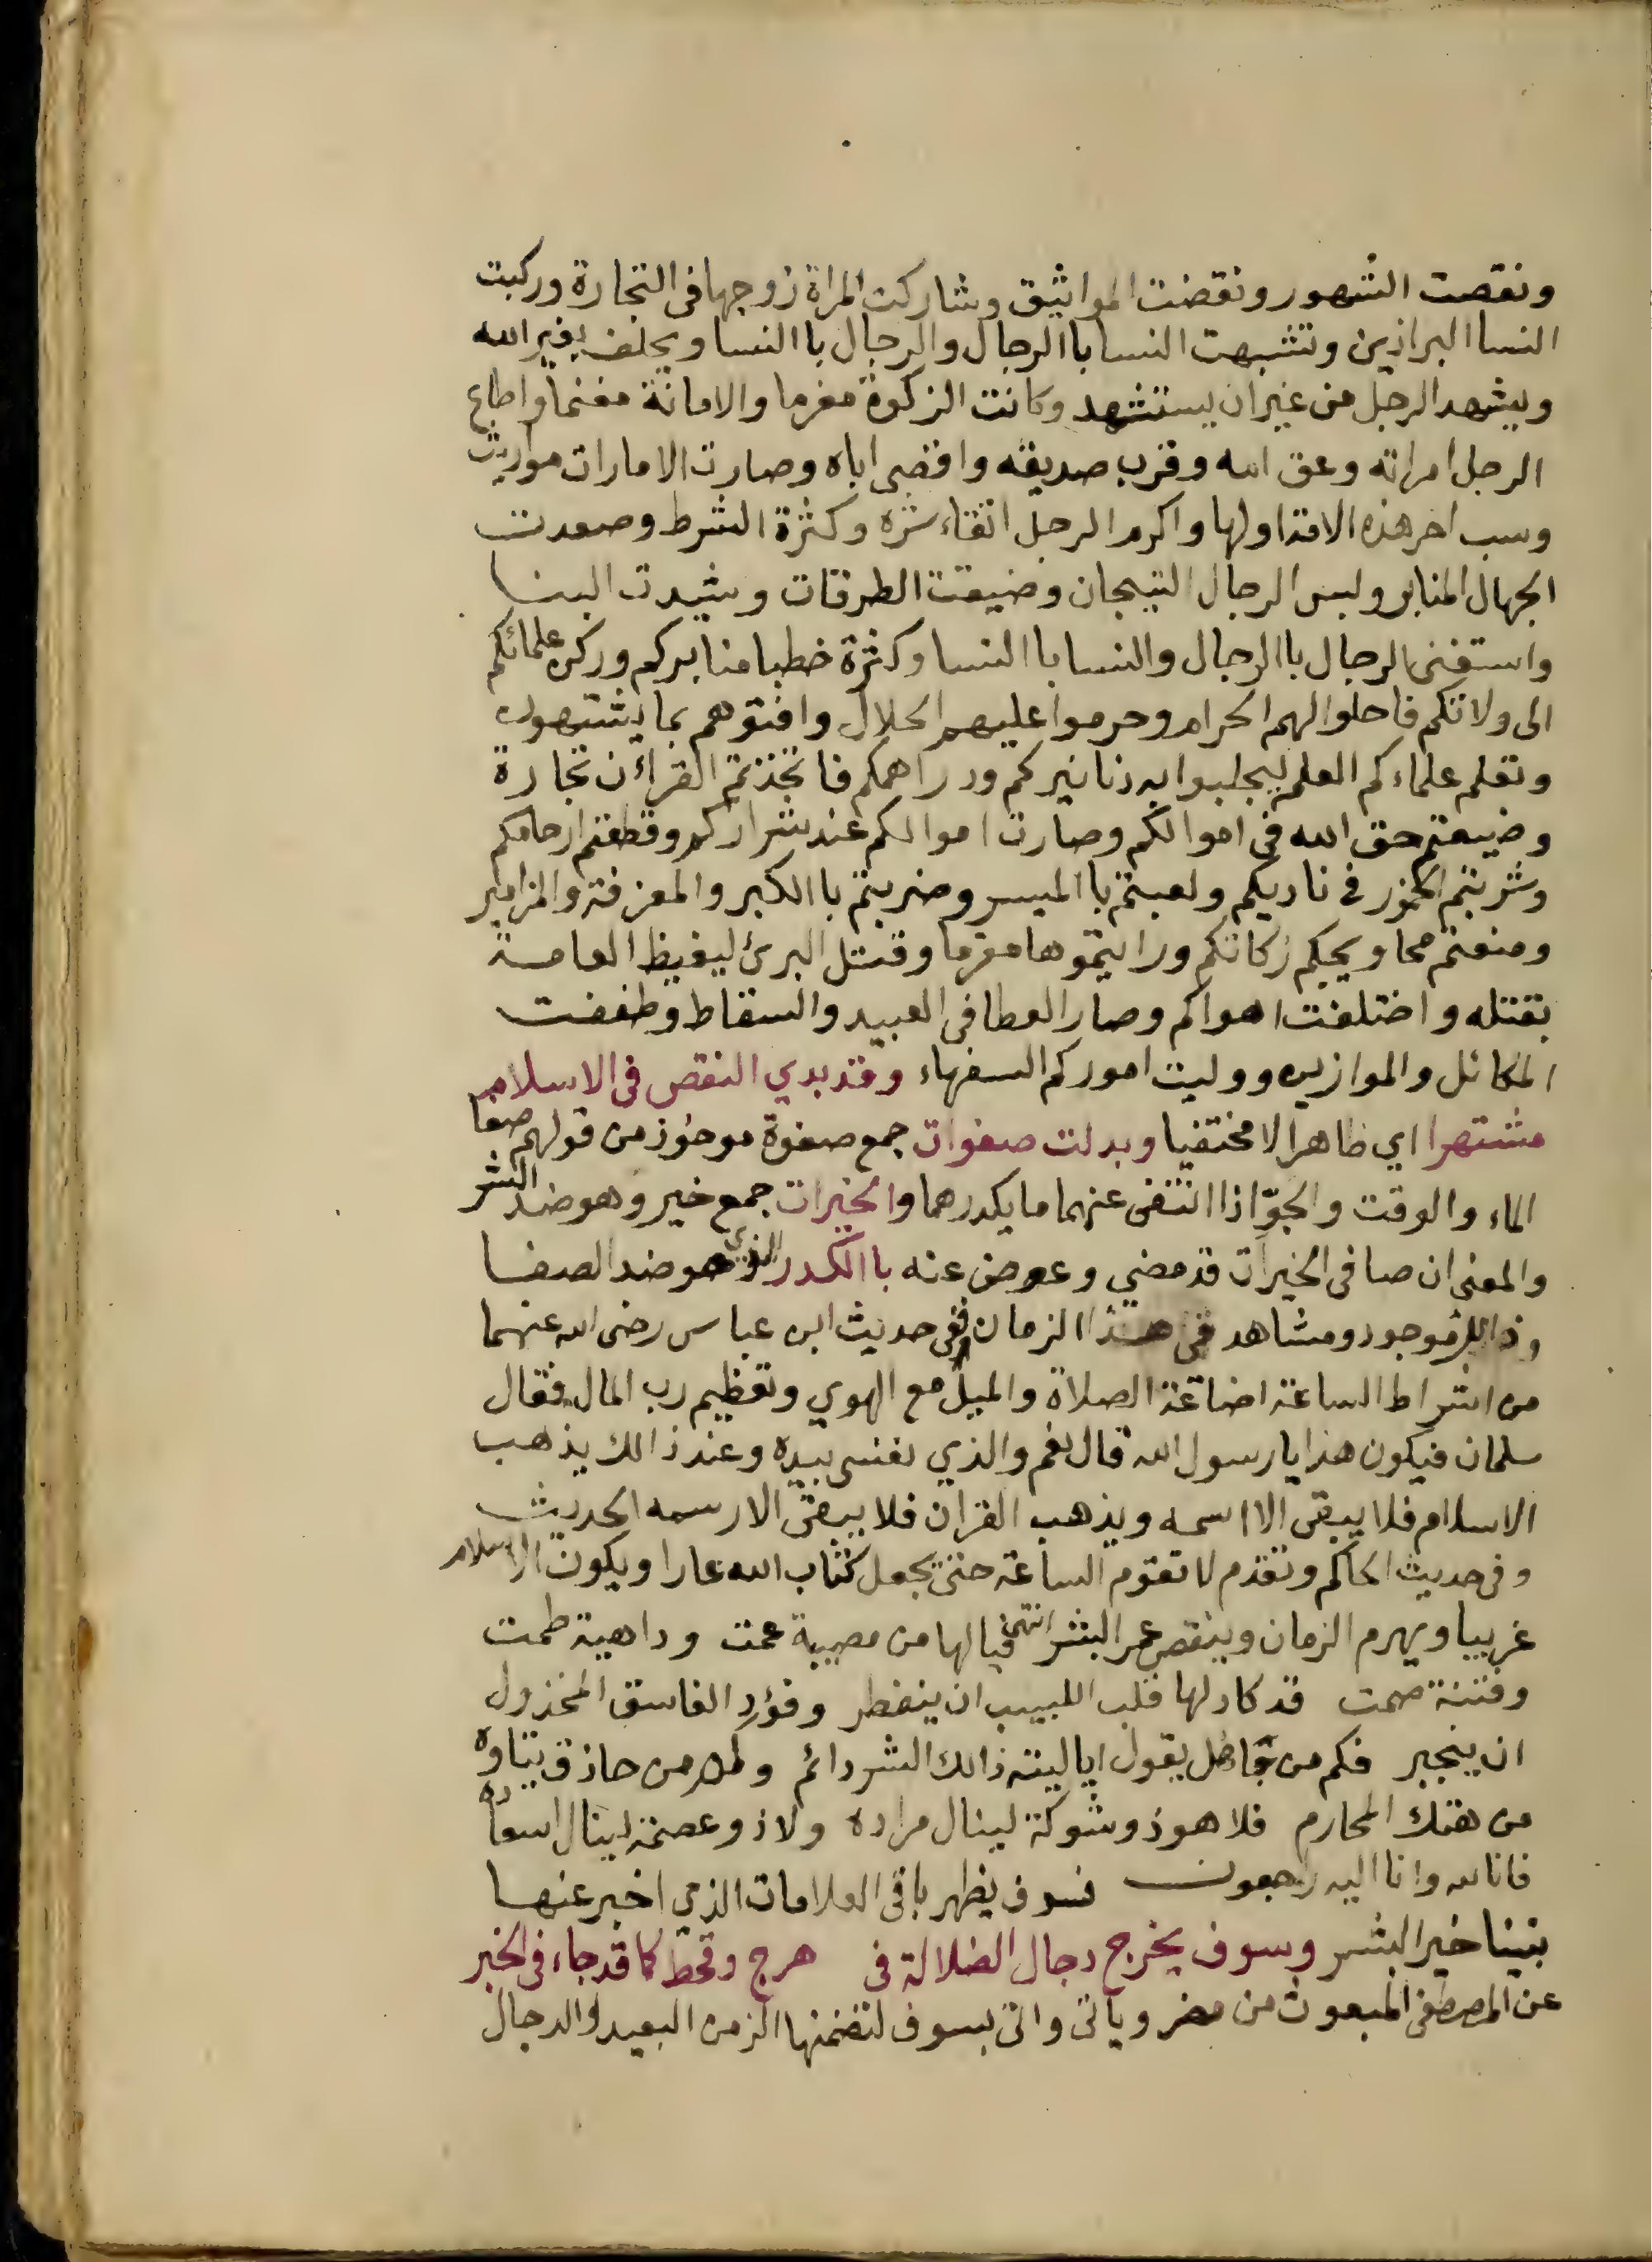 ونقصت الشهور ونقضت المواثيق وشاركت المراة زوجها فى التجارة وركبت
النسا البراذين وتشبهت النسا باالرجال والرجال باالنسا ويحلف بغير الله
ويشهد الرجل من غير ان يستشهد وكانت الزكوة مغرما والامانة مغنما واطاع
الرجل امراته وعق امه وقرب صديقه واقصى اباه وصارت الامارات مواريث
وسب اخر هذه الامة اولها واكرم الرجل اتقاء شره وكثرة الشرط وصعدت
الجهال المنابر ولبس الرجال التيجان وضيقت الطرقات وشيدت البنا
واستغنى الرجال باالرجال والنسا باالنسا وكثرة خطبا منابركم وركن علمائكم
الى ولاتكم فاحلوا لهم الحرام وحرموا عليهم الحلال وافتوهم بما يشتهون
وتعلم علماءكم العلم ليجلبوا به دنانيركم ودراهمكم فاتخذتم القرأن تجارة
وضيعتم حق الله فى اموالكم وصارت اموالكم عند شراركم وقطعتم ارحامكم
وشربتم الخمور فى ناديكم ولعبتم باالميسر وضربتم باالكبر والمعزفة والمزامير
ومنعتم محاويجكم زكاتكم ورايتموها مغرما وقتل البرئ ليغيظ العامة
بقتله واختلفت اهواكم وصار العطا فى العبيد والسقاط وطففت
المكائل والموازين ووليت اموركم السفهاء وقد بدي النقص فى الاسلام
مشتهرا اي ظاهرا لا مختفيا وبدلت صفوات جمع صفوة موخوذ من قولهم صفا
الماء والوقت والجوّ اذا انتفى عنهما ما يكدرهما والخيرات جمع خير وهو ضد الشر
والمعنى ان صافى الخيرات قد مضى وعوض عنه باالكدر الذي هو ضد الصفا
وذالك موجود ومشاهد فى هذا الزمان ففى حديث ابن عباس رضى الله عنهما
من اشراط الساعة اضاعة الصلاة والميل مع الهوي وتعظيم رب المال فقال
سلمان فيكون هذا يا رسول الله قال نعم والذي نفسى بيده وعند ذالك يذهب
الاسلام فلا يبقى الا اسمه ويذهب القران فلا يبقى الا رسمه الحديث
وفى حديث الحاكم وتقدم لا تقوم الساعة حتى يجعل كتاب الله عارا ويكون الاسلام
غريبا ويهرم الزمان وينقص عمر البشر انتهى فيالها من مصيبة عمت وداهية طمت
وفتنة صمت قد كاد لها قلب اللبيب ان ينفطر وفؤد الفاسق المخذول
ان ينجبر فكم من جاهل يقول اياليته ذالك الشر دائم وكم من حاذق يتاوه
من هتك المحارم فلا هو ذو شوكة لينال مراده ولا ذو عصمة لينال اسعاده
فانا لله وانا اليه راجعون فسوف يظهر باقى العلامات الذي اخبر عنها
نبينا خير البشر وسوف يخرج دجال الضلالة فى هرج وقحط كما قد جاء فى الخبر
عن المصطفى المبعوث من مضر وياتى واتى بسوف لتضمنها الزمن البعيد والدجال